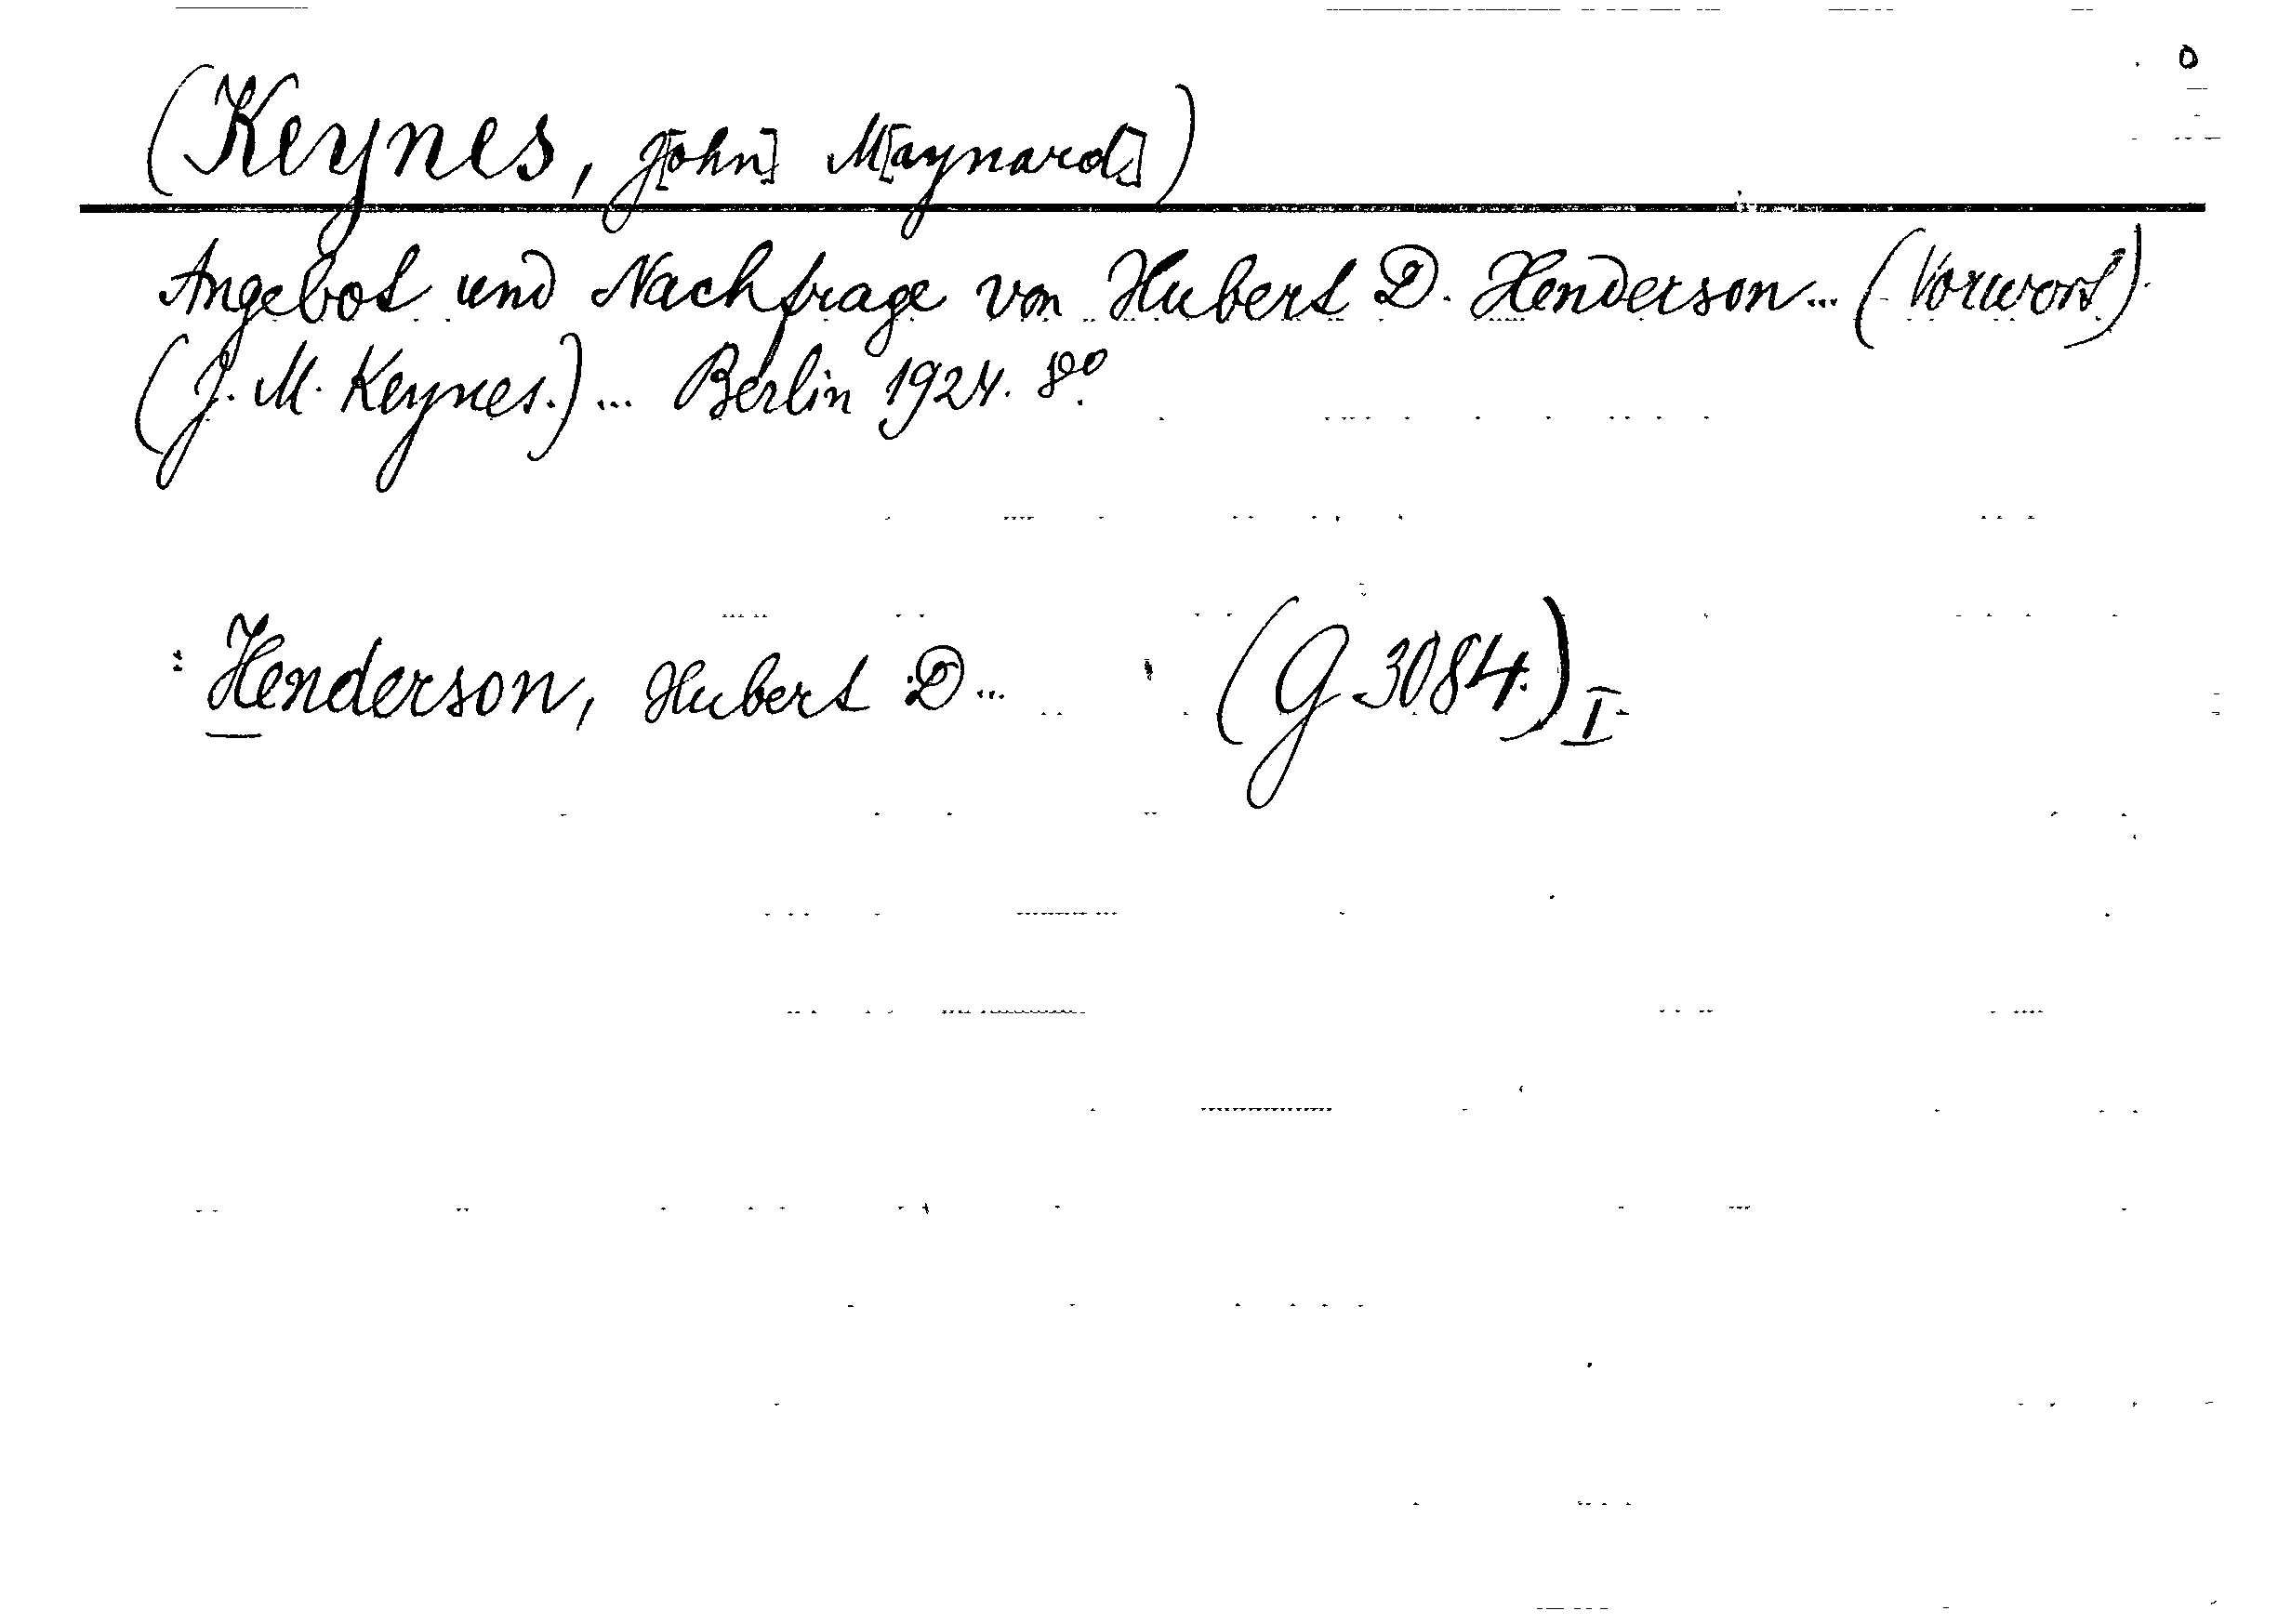 o
(Keynes, J[ohn] M[aynard])
Angebot und Nachfrage von Hubert D. Henderson... (Vorwort)
(J. M. Keynes.) ... Berlin 1924. 8°.
: Henderson, Hubert D... (G 3084.) I